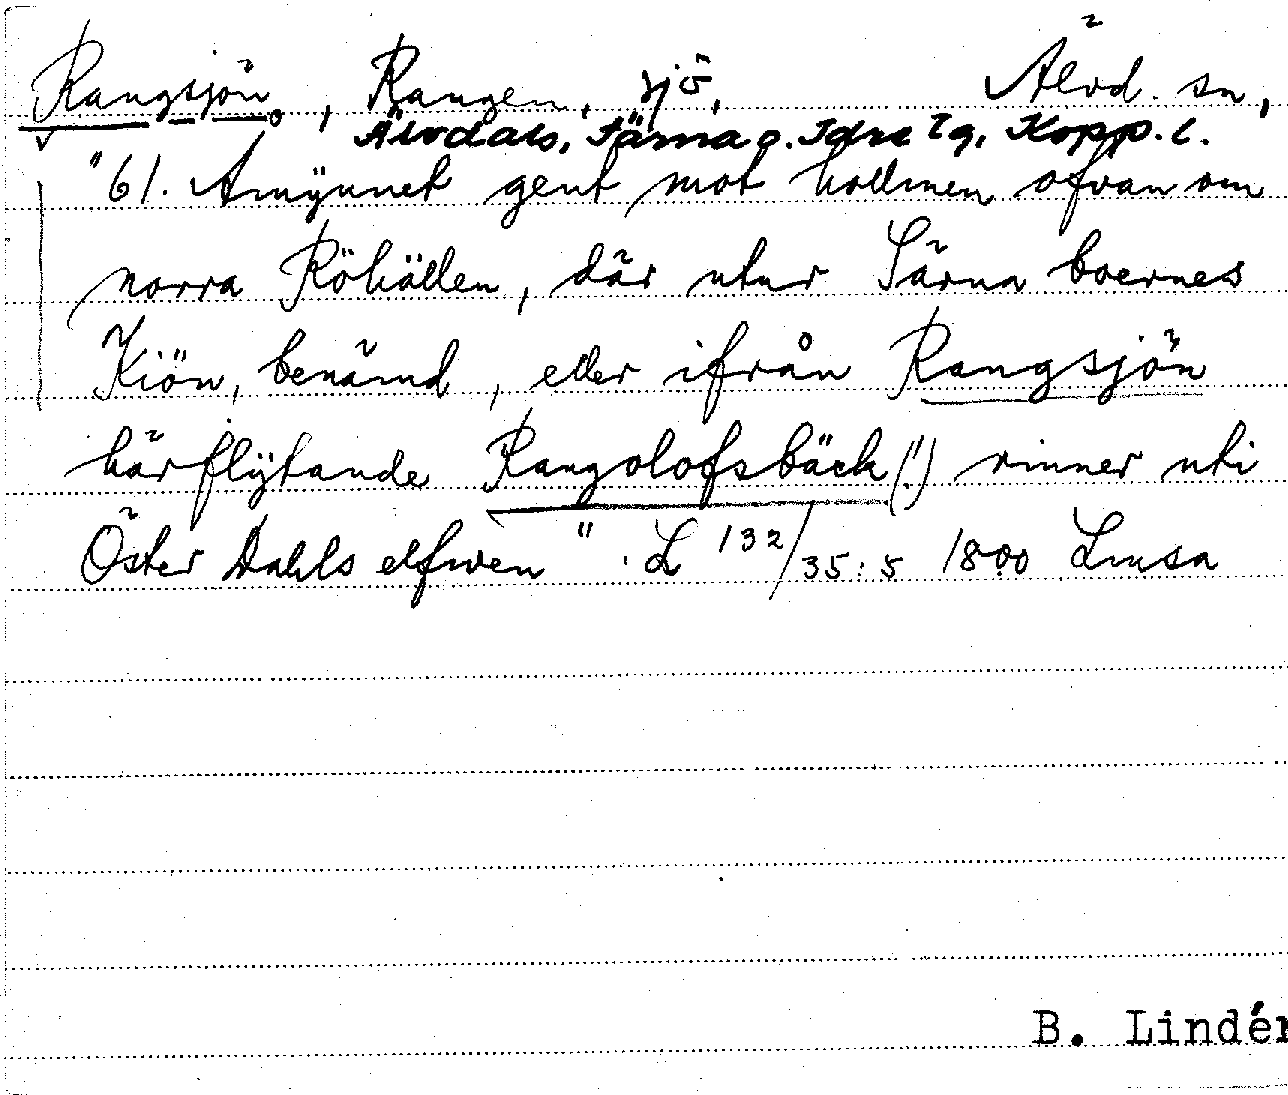 Rangsjön, Rangen, sjö, Älvd. sn,
Älvdals, Särna o. Idre tg, Kopp. l.
"61. Åmynnet gent mot hollmen ofvan om
norra Röhällen, där utur Särna boernes
Kiön, benämd, eller ifrån Rangsjön
härflytande Rangolofsbäck (!) rinner uti
Öster Dahls elfwen". L 132/35:5 1800 Lmsa
B. Lindén